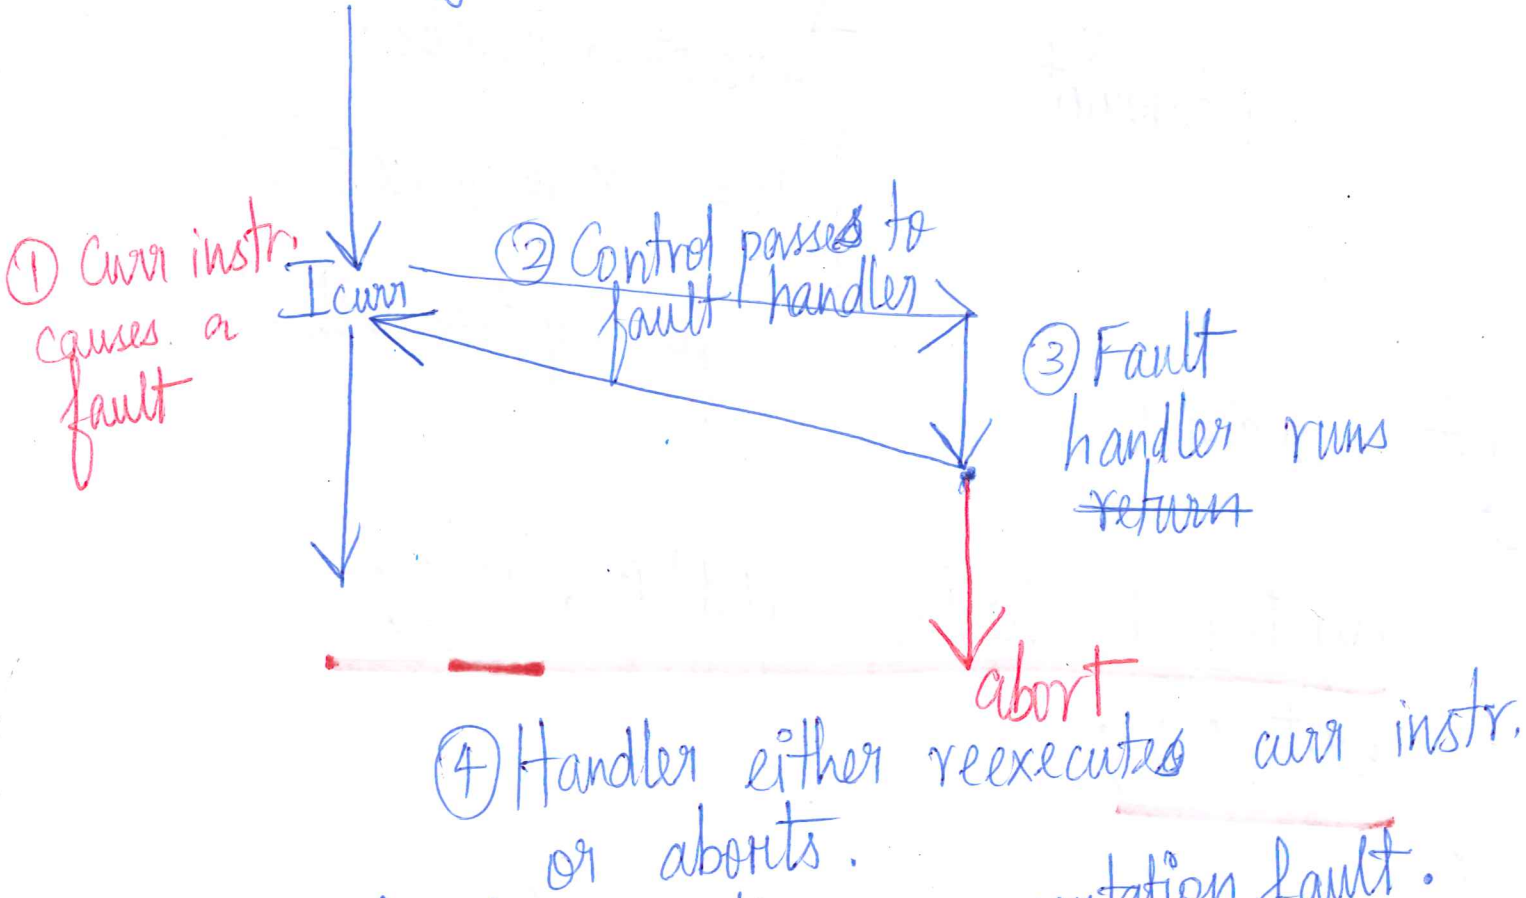 ① Curr instr.
causes a
fault
Icurr
② Control passes to
fault handler
③ Fault
handler runs
return
abort
④ Handler either reexecutes curr instr.
or aborts.
fault.